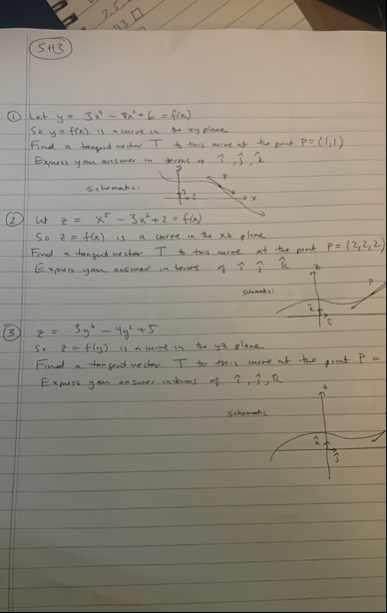 SH3
① Let y = 3x⁴ - 8x² + 6 = f(x)
So y = f(x) is a curve in the xy plane
Find a tangent vector T to this curve at the point P = (1,1)
Express your answer in terms of î, ĵ, k̂
Schematic:
P
x
② Let z = x⁵ - 3x² + 2 = f(x)
So z = f(x) is a curve in the xz plane
Find a tangent vector T to this curve at the point P = (2,2,2)
Express your answer in terms of î ĵ k̂
Schematic:
z
P
k̂
î
③ z = 3y⁶ - 4y² + 5
So z = f(y) is a curve in the yz plane
Find a tangent vector T to this curve at the point P =
Express your answer in terms of î, ĵ, k̂
Schematic
z
k̂
ĵ